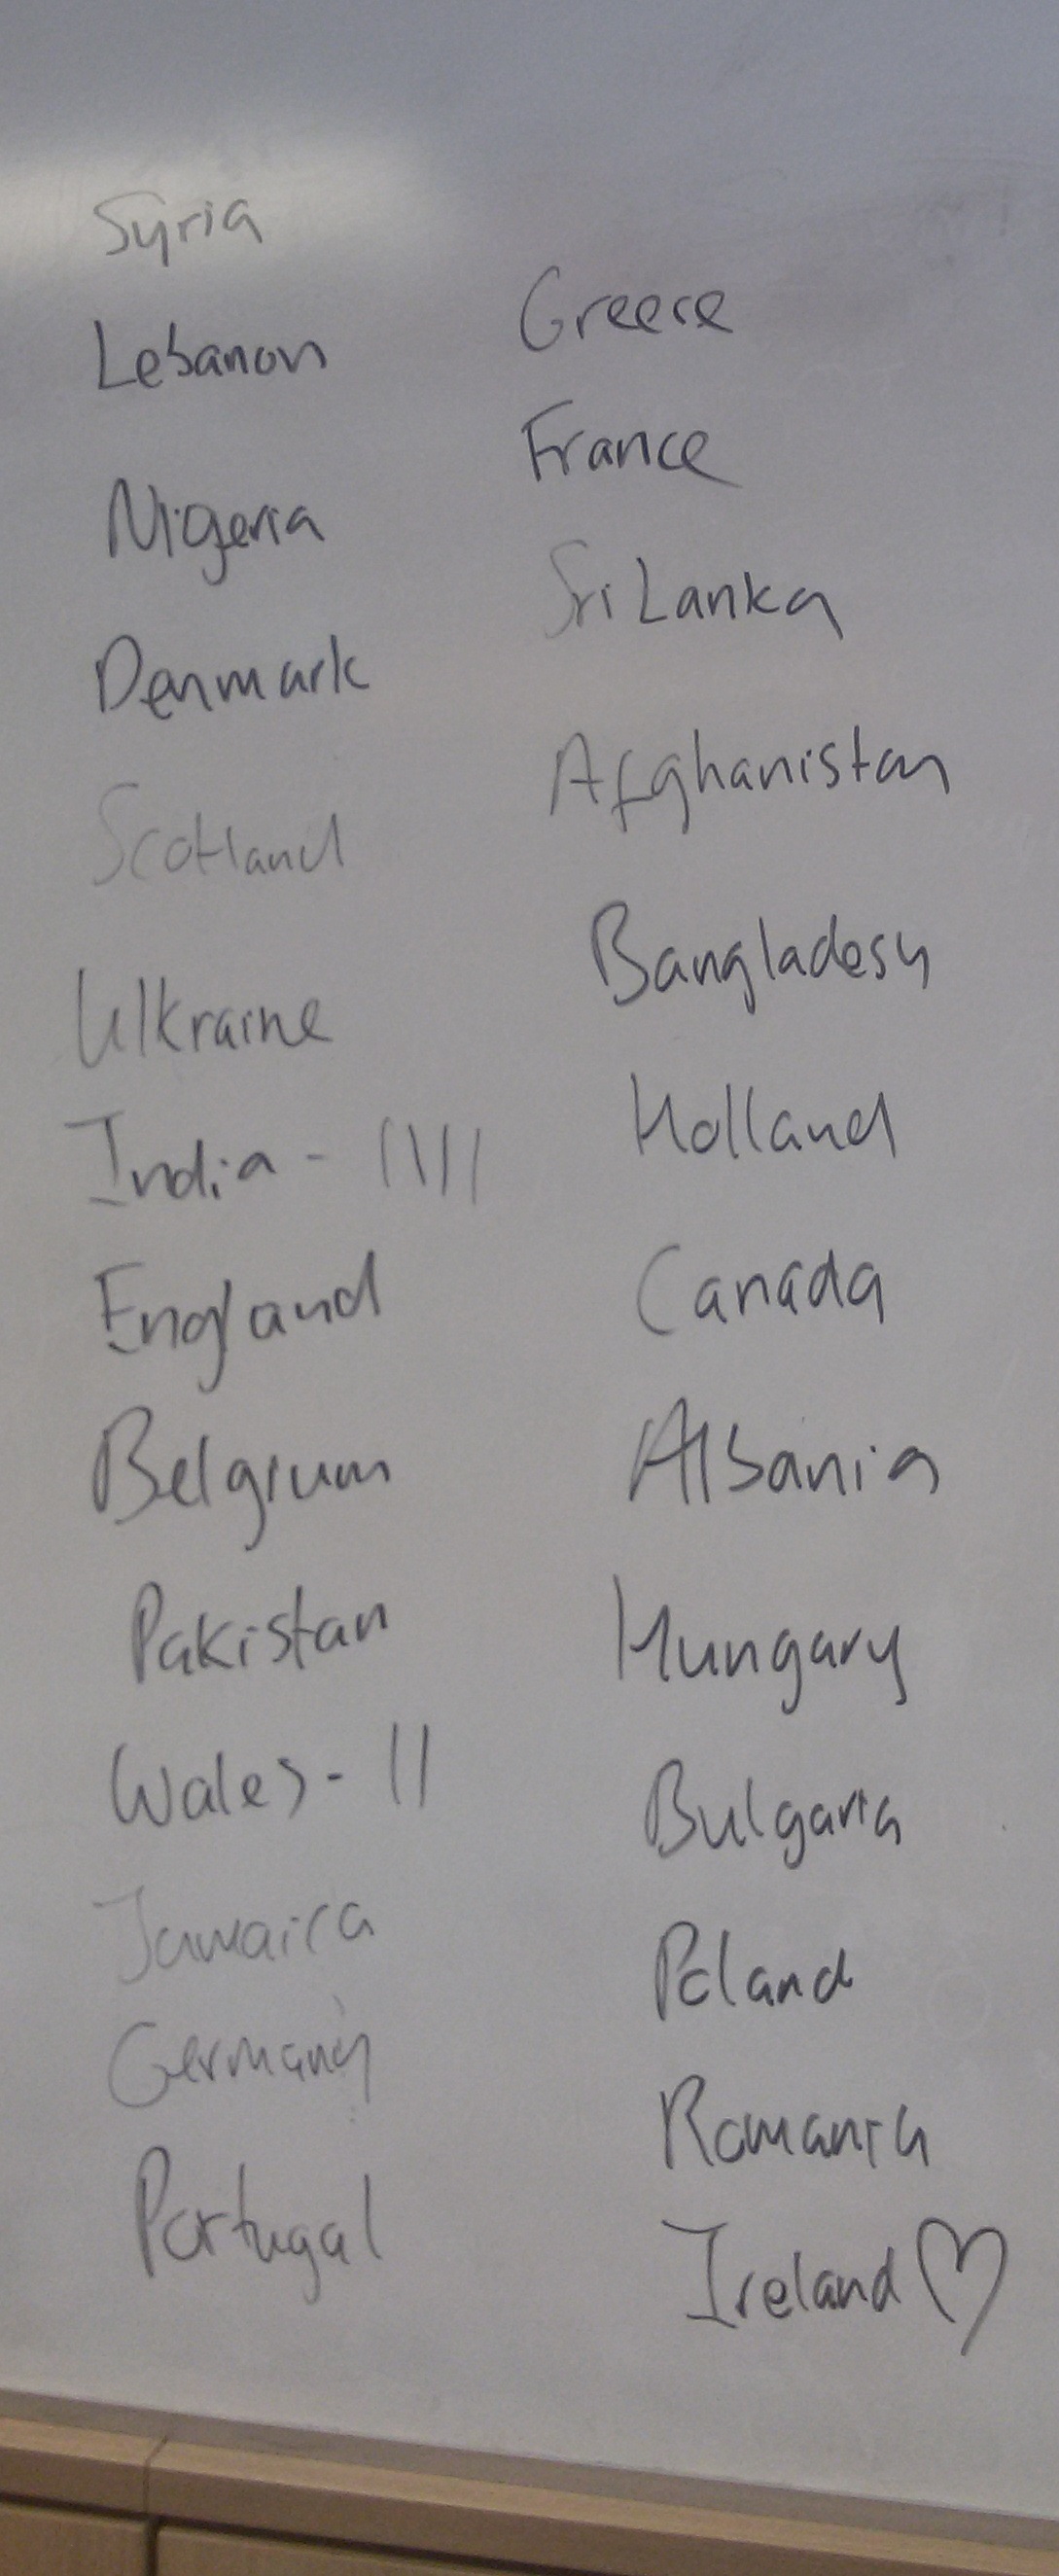 Syria
Lebanon
Nigeria
Denmark
Scotland
Ukraine
India - IIII
England
Belgium
Pakistan
Wales - II
Jamaica
Germany
Portugal
Greece
France
Sri Lanka
Afghanistan
Bangladesh
Holland
Canada
Albania
Hungary
Bulgaria
Poland
Romania
Ireland ♡